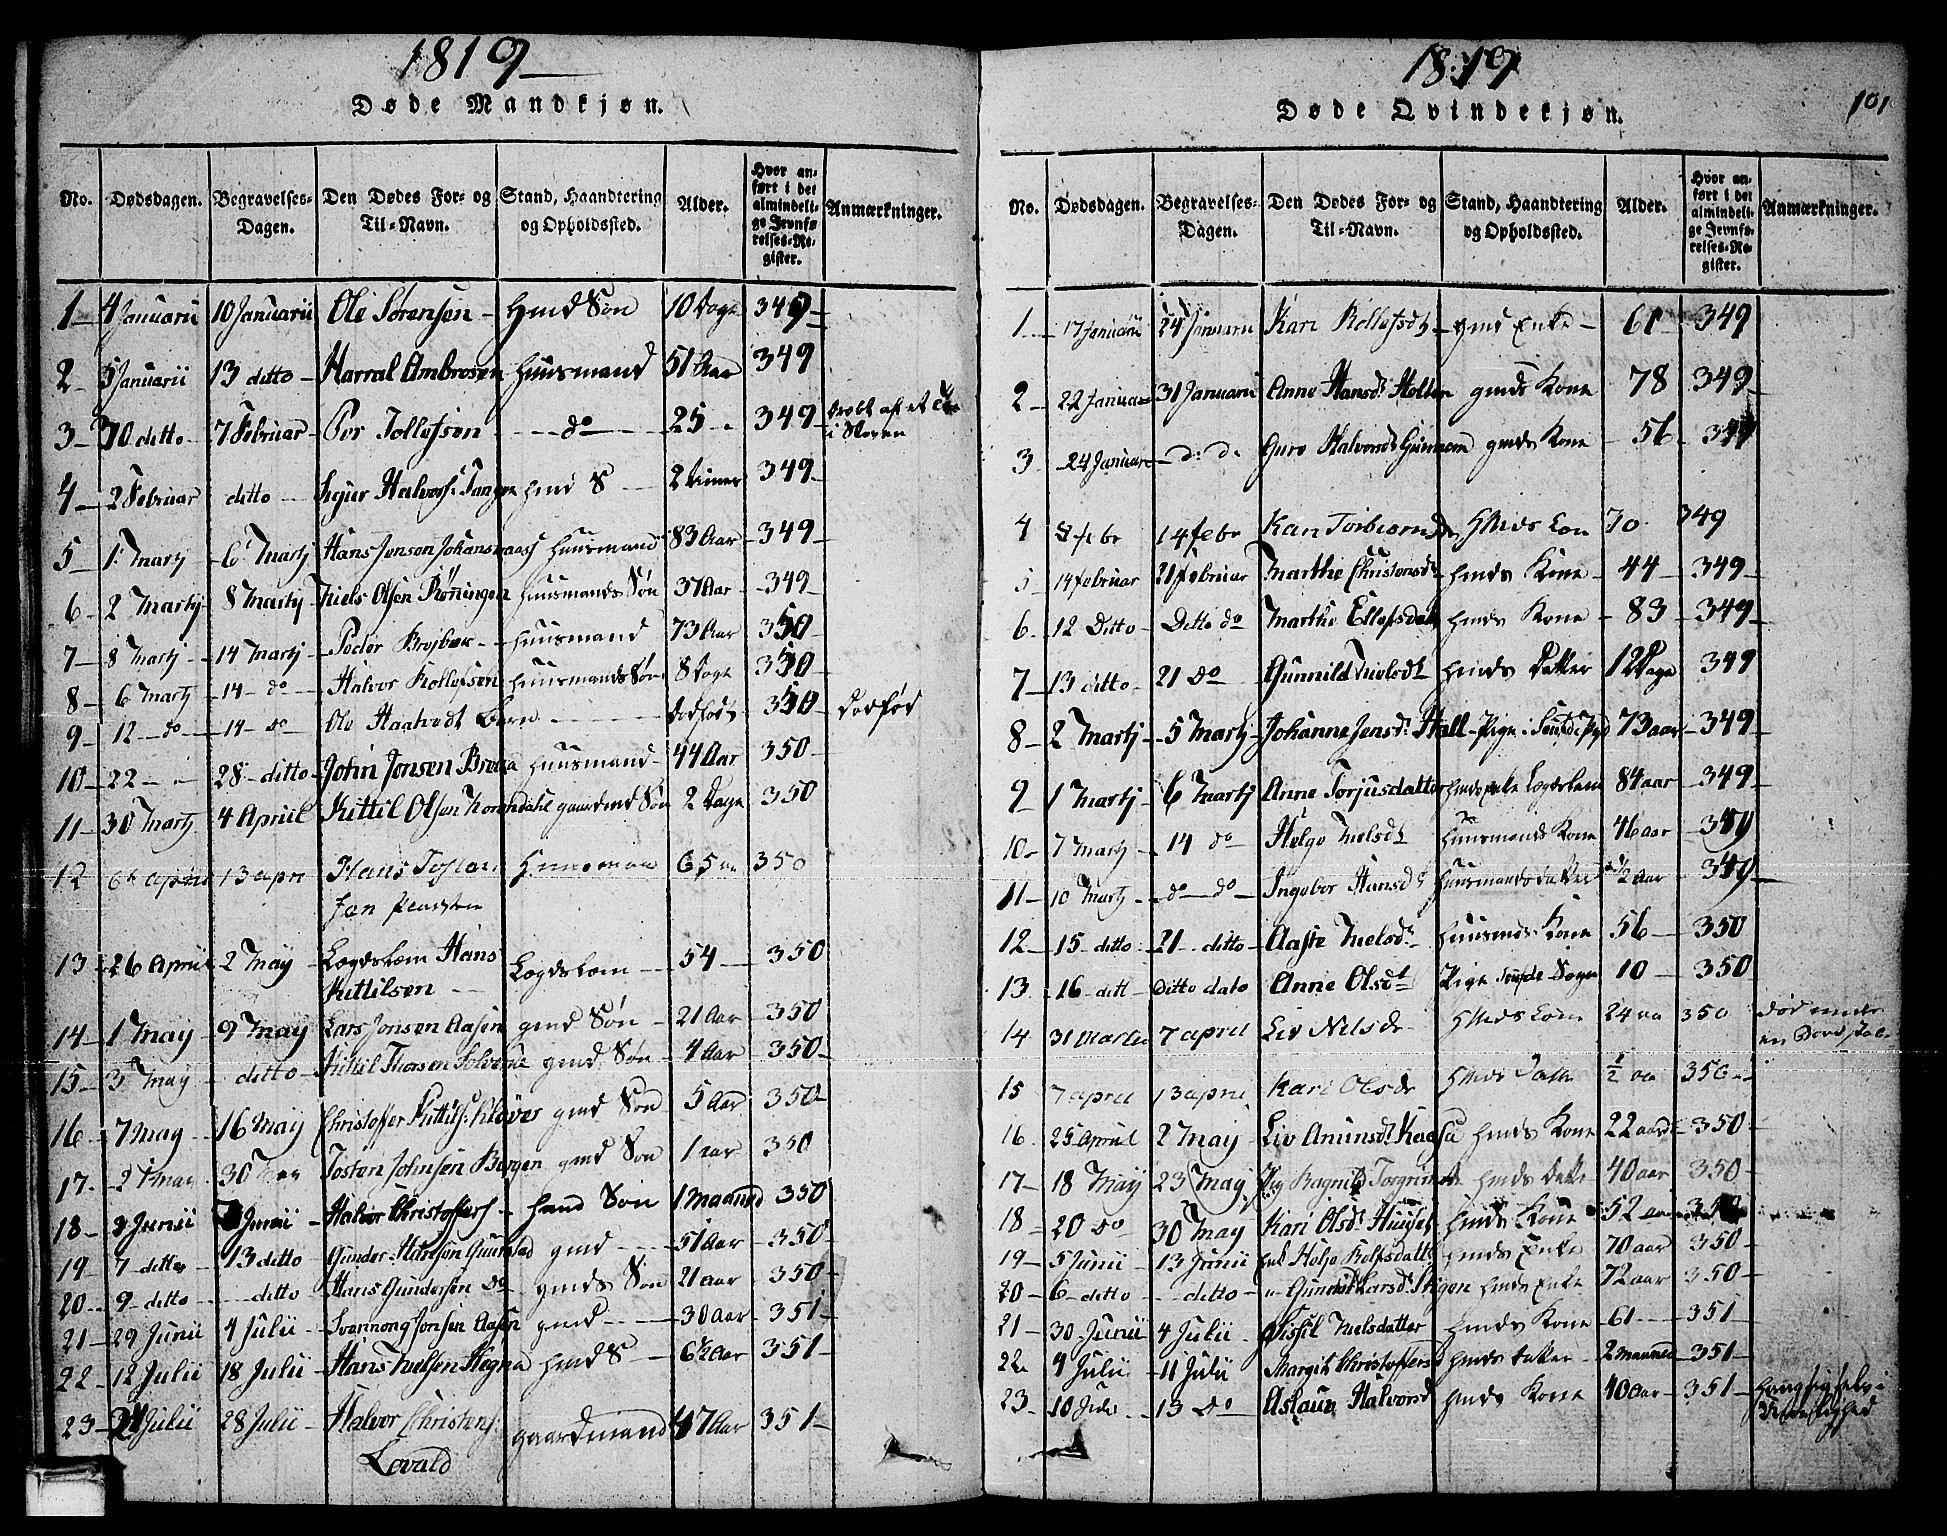 1819
Døde Mandkjøn.
No. Dødsdagen. Begravelses-Dagen. Den Dødes For- og Til-Navn. Stand, Haandtering og Opholdssted. Alder. Hvor anført i det almindelige Jevnførelses-Register. Anmærkninger.
1 4 Januarii 10 Januarii Ole Sørensen Hmd Søn 10 Dage 349
2 5 Januarii 13 ditto Harral Ambrosen Huusmand 51 Aar 349
3 30 ditto 7 Februar Per Tollefsen do 25 349 af et
i Skoven
4 2 Februar ditto Sigur Halvors: Tangen hmd S 2 Timer 349
5 1 Martj 6 Martj Hans Jonsen Johansmaas Huusmand 83 Aar 349
6 2 Martj 8 Martj Niels Olsen Røningen Huusmands Søn 37 Aar 349
7 8 Martj 14 Martj Peder Huusmand 73 Aar 350
8 6 Martj 14 do Halvor Rollefsen Huusmands Søn 8 Dage 350
9 12 do 14 do Ole Haatvedt Barn Dødfødt 350 Dødfød
10 22 28 ditto John Jonsen Huusmand 44 Aar 350
11 30 Martj 4 April Kittil Olsen gaardmd Søn 2 Dage 350
12 6te april 13 apri Hans 65 aa 350
Jan
13 26 April 2 May Lægdslem Hans
Kittilsen Lægdslem 54 350
14 1 May 9 May Lars Jonsen Aasen gmd Søn 21 Aar 350
15 3 May ditto Kittil Thorsen gmd Søn 4 Aar 350
16 7 May 16 May Christoffer Kittils: Kløver gmd Søn 5 Aar 350
17 2 May 30 May Josten Johnsen Bergen gmd Søn 1 aar 350
18 3 Junii Junii Halvor Christoffers hmd Søn 1 Maaned 350
19 7 ditto 13 ditto Gunder Hansen gmd 51 Aar 350
20 9 ditto ditto Hans Gundersen do gmds Søn 21 aar 350
21 29 Junii 4 Julii Svennong Jonsen Aasen gmd 30 Aar 351
22 12 Julii 18 Julii Hans Nielsen Hegna hmd S 6½ Aar 351
23 21 Julii 28 Julii Halvor Christens: gaardmand 47 Aar 351
Levald
1819
101
Døde Qvindekjøn.
No. Dødsdagen. Begravelses-Dagen. Den Dødes For- og Til-Navn. Stand, Haandtering og Opholdssted. Alder. Hvor anført i det almindelige Jevnførelses-Register. Anmærkninger.
1 17 Januarii 24 Januarii Kari Rollefsdt gmd Enke 61 349
2 22 Januar 31 Januarii Anne Hansdt Holten gmds Kone 78 349
3 24 Januar d. d. Guro Halvorsdt gmds Kone 56 349
4 8 febr 14 febr Kari Torbiørnsd Hmds Kone 70 349
5 14 februar 21 februar Marthe Christensdt hmds Kone 44 349
6 12 Ditto Ditto do Marthe Ellefsdatt hmds Kone 83 349
7 13 ditto 21 do Gunnild Nielsdt hmds Datter 12 Dage 349
8 2 Martj 5 Martj Johanne Jensdt Hall Pige i 73 aar 349
9 1 Martj 6 Martj Anne Torjusdatter hmds Enke Lægdslem 84 aar 349
10 7 Martj 14 do Helge Nielsdt Huusmands Kone 46 aar 349
11 10 Martj do do Ingebor Hansdt Huusmands datter ½ Aar 349
12 15 ditto 21 ditto Aaste Nielsdt Huusmds Kone 56 350
13 16 ditt ditto dato Anne Olsdt Pige Sogn 10 350
14 31 Martii 7 april Liv Nilsdr Hmds Kone 24 aa 350 død under
en
15 7 april 13 april Kari Olsdr Hmds Datt ½ aa 350
16 25 April 2 May Liv Amunsdt Kaasa hmds Kone 22 aar 350
17 18 May 23 May Ragnild Torgrims hmds datt 40 aar 350
18 20 do 30 May Kari Olsdt hmds Kone 52 aar 350
19 5 Junii 13 Junii Enk Helje Rolfsdatt hmds Enke 70 aar 350
20 6 ditto ditto Gunnild Larsdt hmds Enke 72 aar 350
21 30 Junii 4 Julii Sissil Nielsdatter hmds Kone 61 351
22 4 Julii 11 Julii Margit Christoffersd hmds datter 2 maaned 351
23 10 Julii 13 do Aslaug Halvorsd hmds Kone 40 Aar 351 hang sig selv i